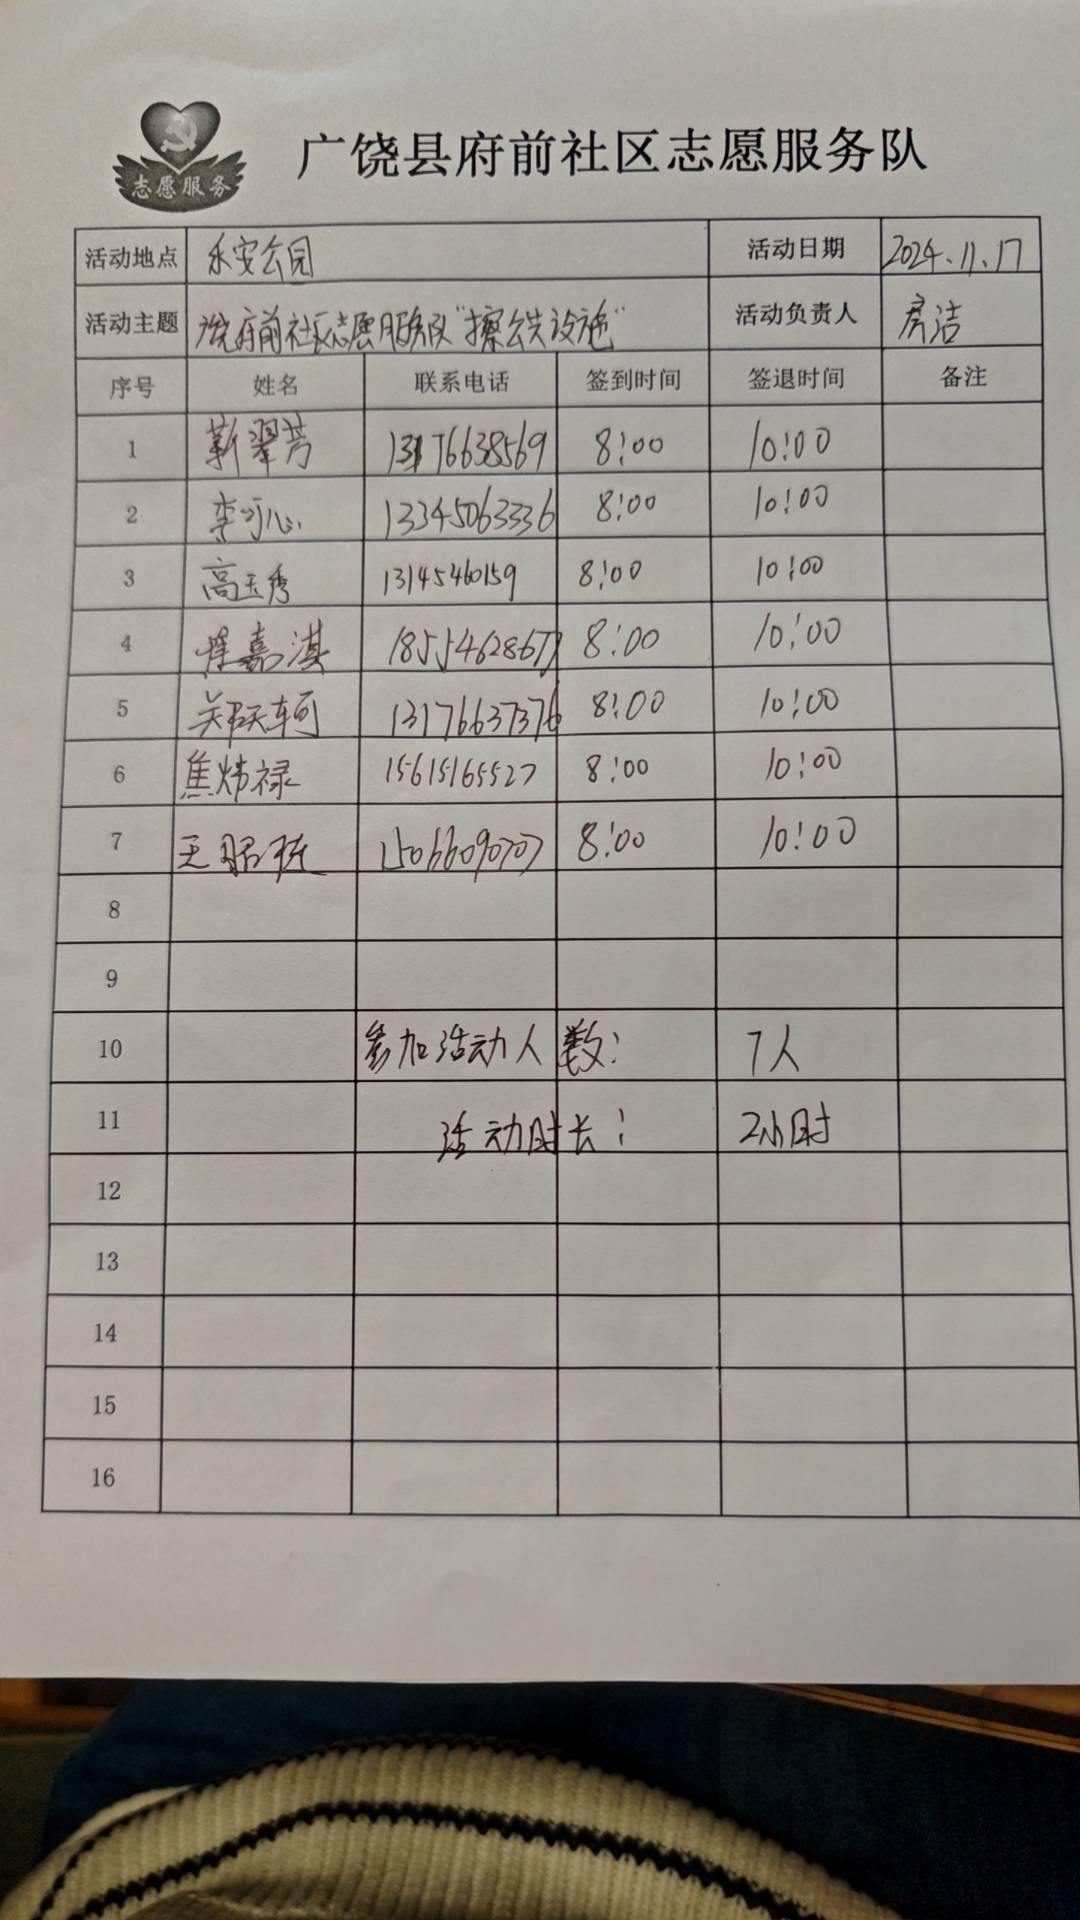 志愿服务
广饶县府前社区志愿服务队
活动地点 永安公园 活动日期 2024.11.17
活动主题 饶府前社区志愿服务队“擦公共设施” 活动负责人 房洁
序号 姓名 联系电话 签到时间 签退时间 备注
1 靳翠芳 13176638569 8:00 10:00
2 李可心 13345063336 8:00 10:00
3 高玉秀 13145460159 8:00 10:00
4 嘉淇 8:00 10:00
5 13176637376 8:00 10:00
6 焦炜禄 15615165527 8:00 10:00
7 15066090707 8:00 10:00
8
9
10 参加活动人数: 7人
11 活动时长: 2小时
12
13
14
15
16